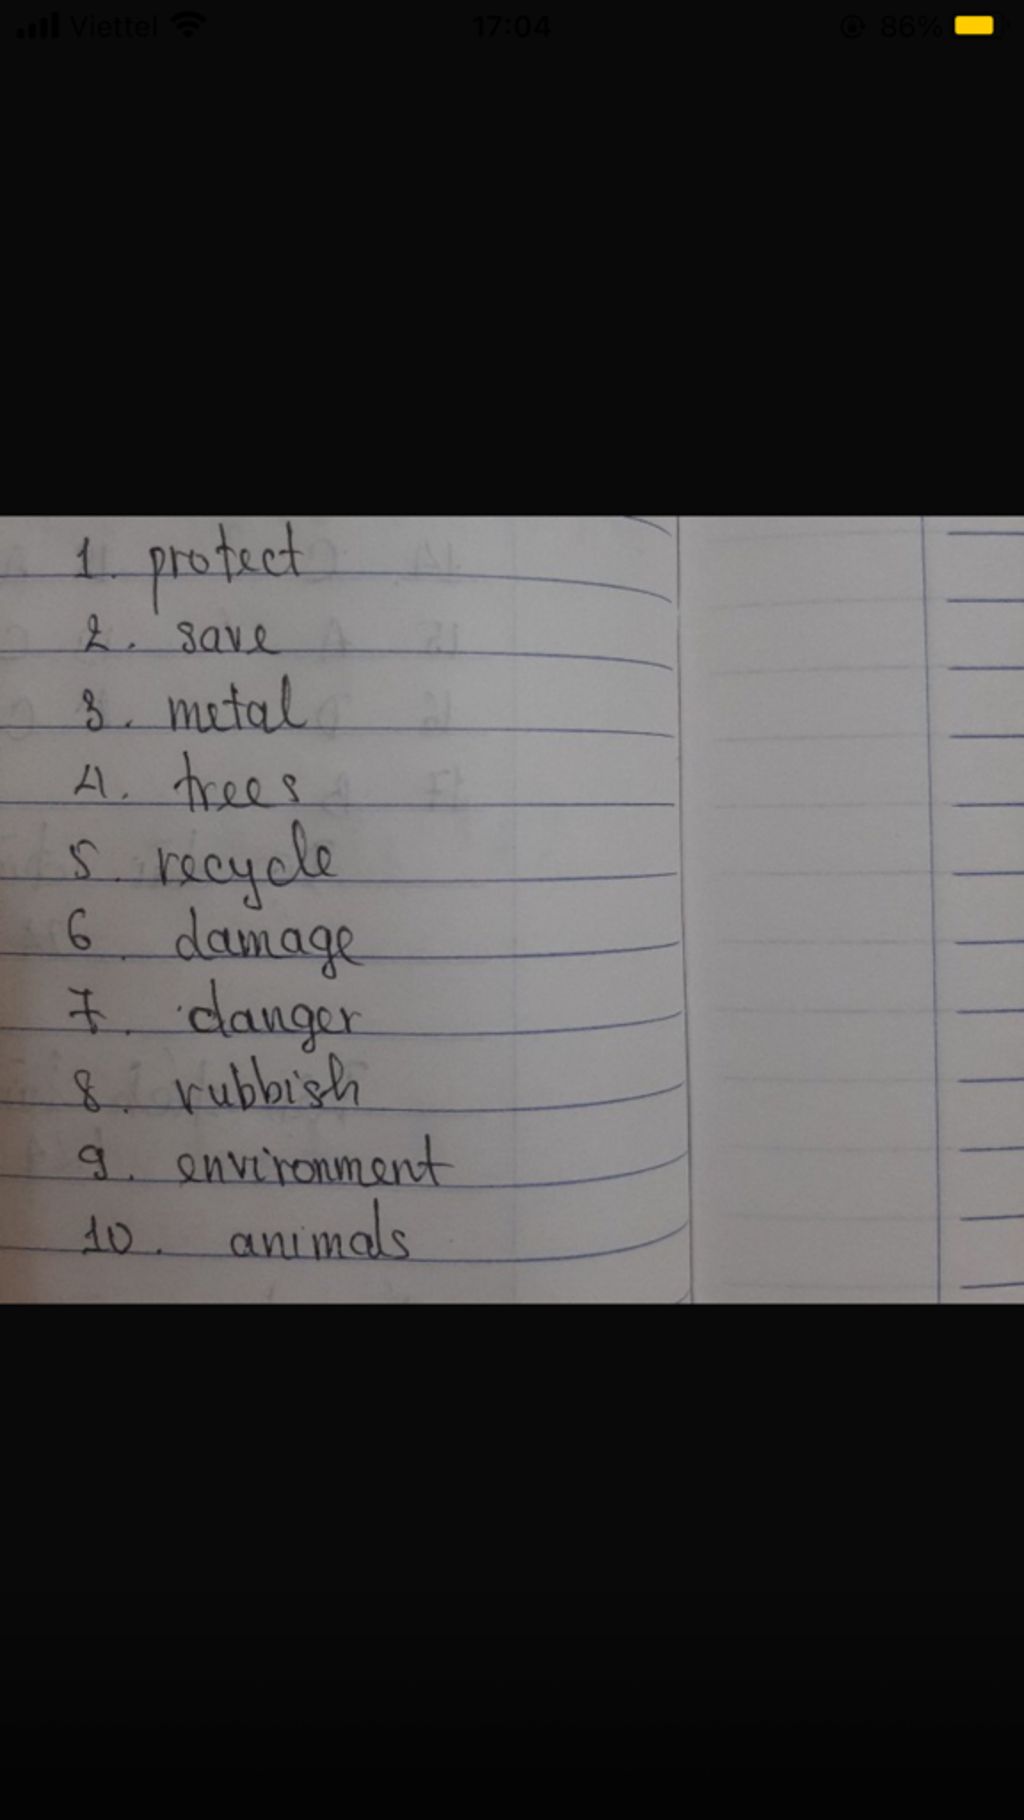 Viettel 17:04 86%
1. protect
2. save
3. metal
4. trees
5. recycle
6. damage
7. danger
8. rubbish
9. environment
10. animals